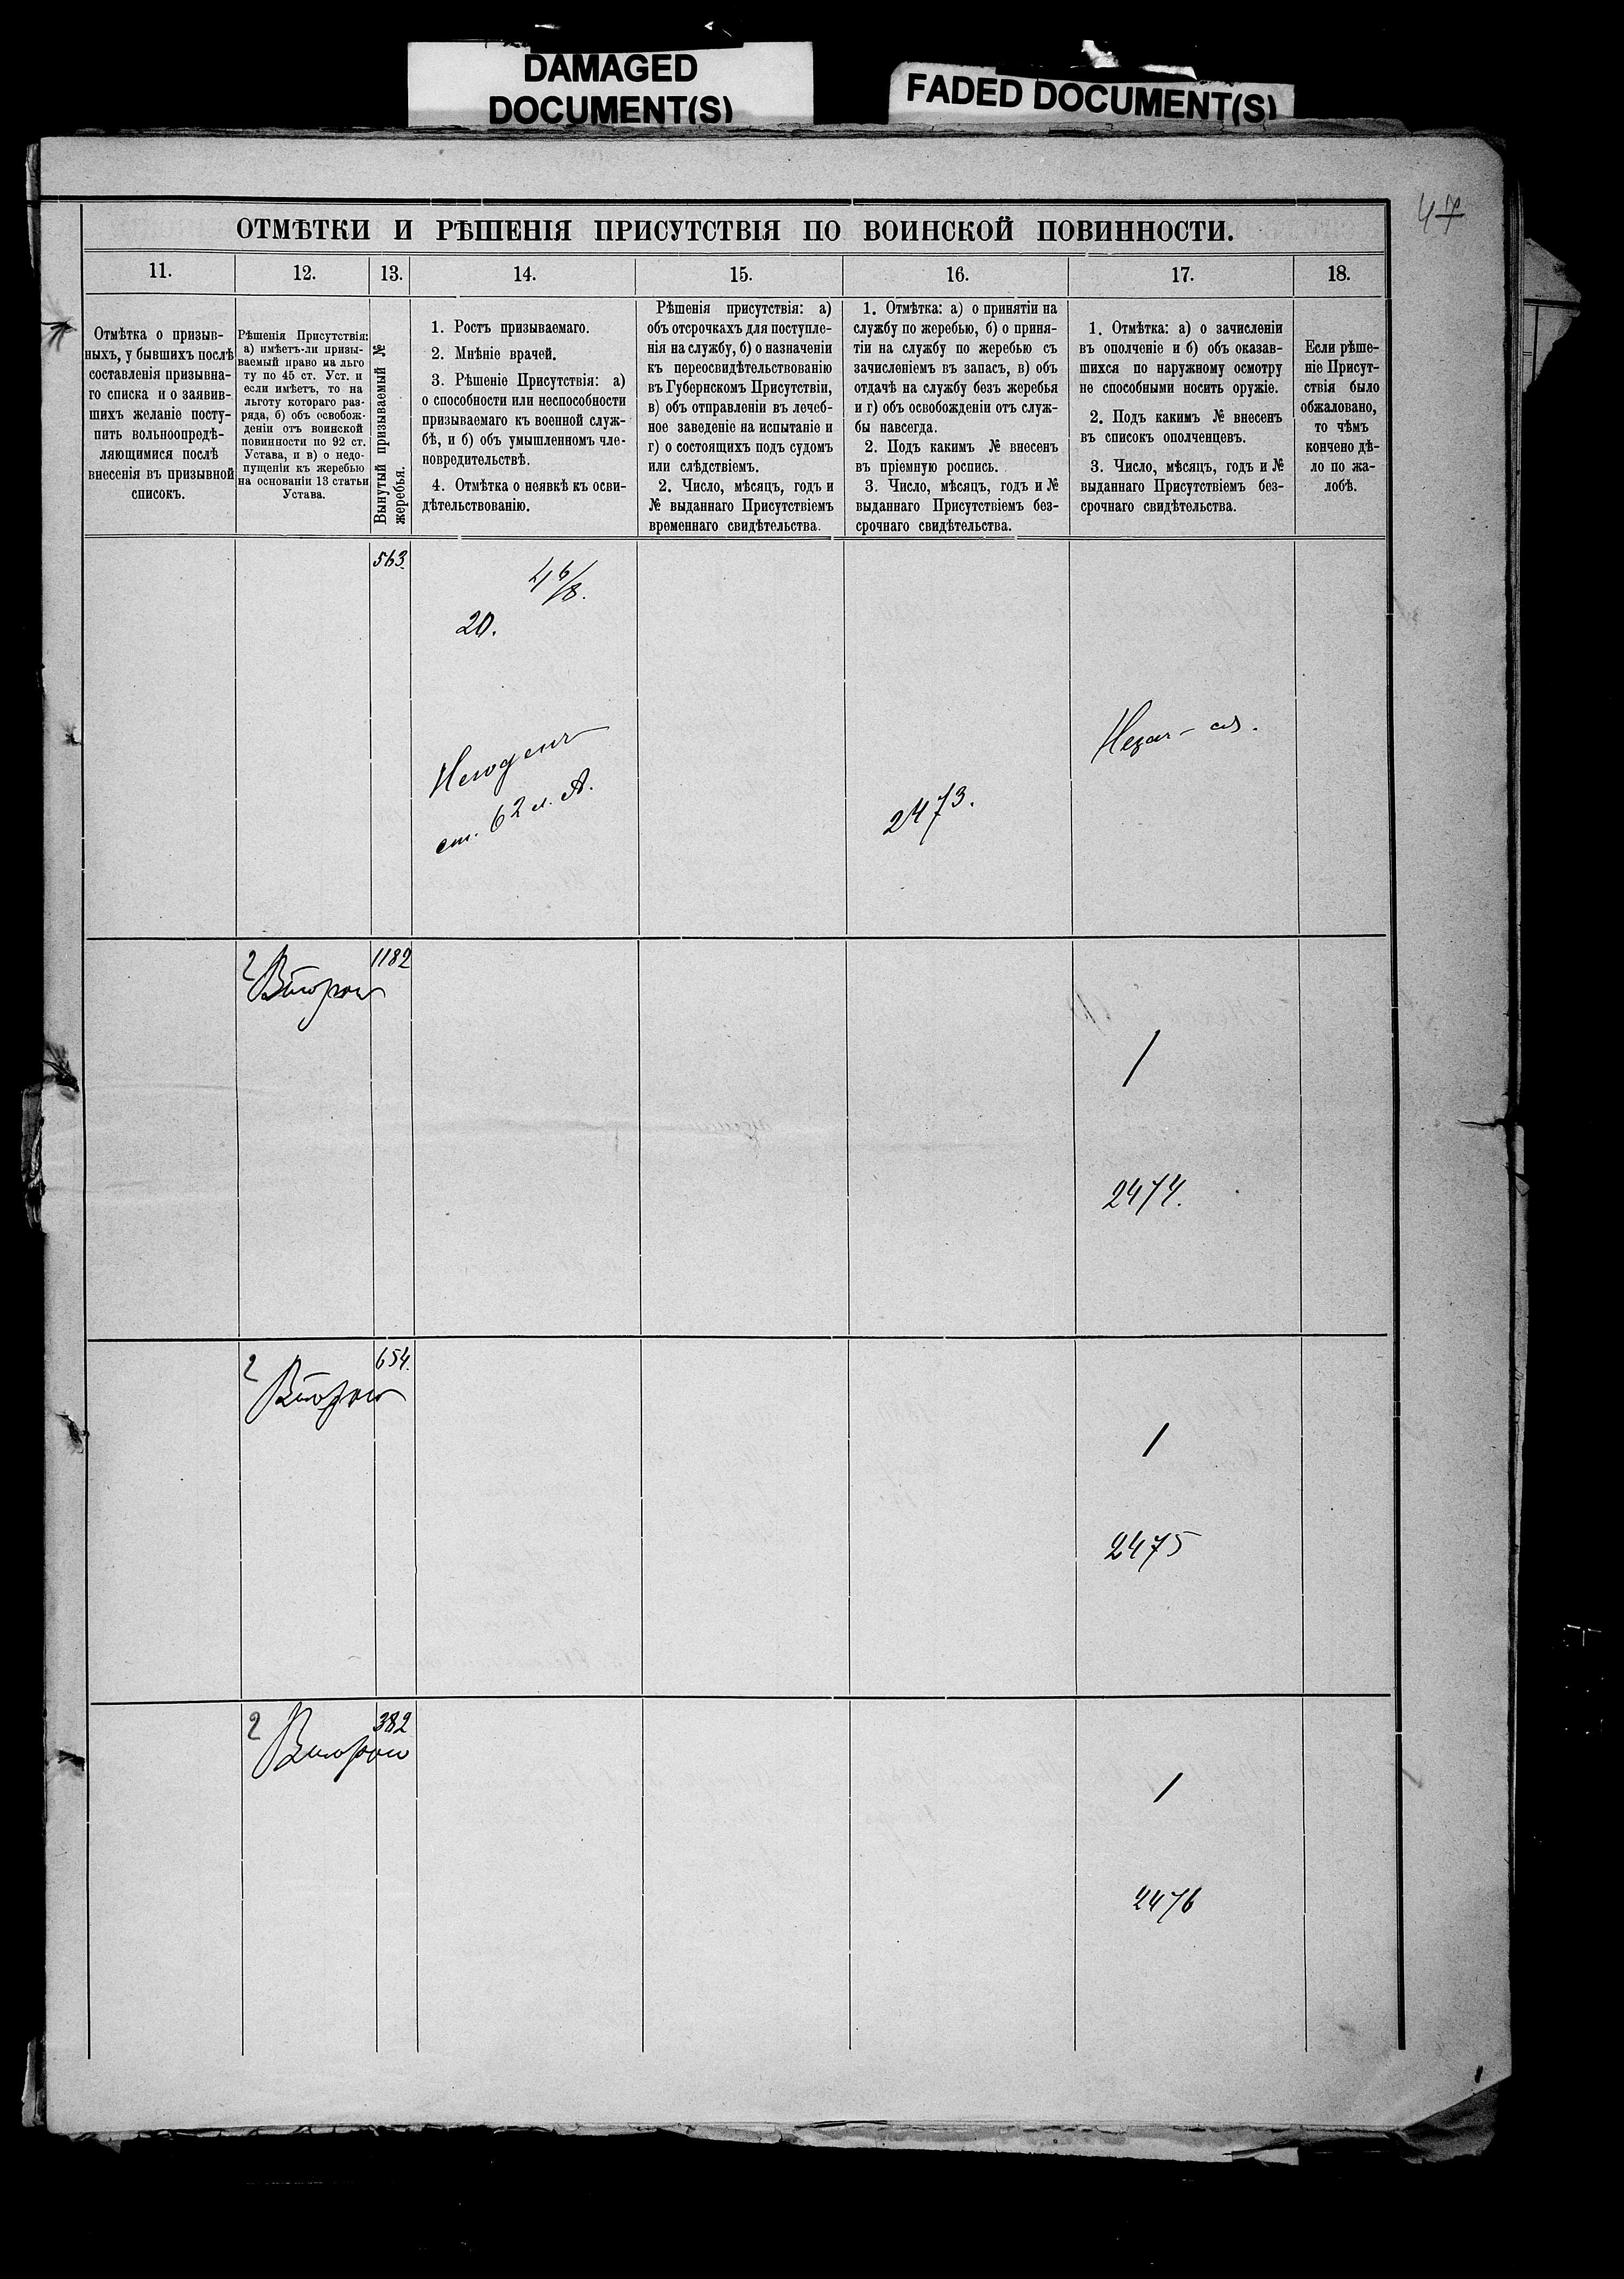 DAMAGED
DOCUMENT(S)
FADED DOCUMENT(S)
47
ОТМѢТКИ И РѢШЕНІЯ ПРИСУТСТВІЯ ПО ВОИНСКОЙ ПОВИННОСТИ.
11.
12.
13.
14.
15.
16.
17.
18.
Отмѣтка о призыв-
ныхъ, у бывшихъ послѣ
составленія призывна-
го списка и о заявив-
шихъ желаніе посту-
пить вольноопредѣ-
ляющимися послѣ
внесенія въ призывной
списокъ.
Рѣшенія Присутствія:
а) имѣетъ-ли призы-
ваемый право на льго
ту по 45 ст. Уст. и
если имѣетъ, то на
льготу котораго раз-
ряда, б) объ освобож-
деніи отъ воинской
повинности по 92 ст.
Устава, и в) о недо-
пущеніи къ жеребью
на основаніи 13 статьи
Устава.
Вынутый призываемый №
жеребья.
1. Ростъ призываемаго.
2. Мнѣніе врачей.
3. Рѣшеніе Присутствія: а)
о способности или неспособности
призываемаго къ военной служ-
бѣ, и б) объ умышленномъ чле-
новредительствѣ.
4. Отмѣтка о неявкѣ къ осви-
дѣтельствованію.
Рѣшенія присутствія: а)
объ отсрочкахъ для поступле-
нія на службу, б) о назначеніи
къ переосвидѣтельствованію
въ Губернскомъ Присутствіи,
в) объ отправленіи въ лечеб-
ное заведеніе на испытаніе и
г) о состоящихъ подъ судомъ
или слѣдствіемъ.
2. Число, мѣсяцъ, годъ и
№ выданнаго Присутствіемъ
временнаго свидѣтельства.
1. Отмѣтка: а) о принятіи на
службу по жеребью, б) о приня-
тіи на службу по жеребью съ
зачисленіемъ въ запасъ, в) объ
отдачѣ на службу безъ жеребья
и г) объ освобожденіи отъ служ-
бы навсегда.
2. Подъ какимъ № внесенъ
въ пріемную роспись.
3. Число, мѣсяцъ, годъ и №
выданнаго Присутствіемъ без-
срочнаго свидѣтельства.
1. Отмѣтка: а) о зачисленіи
въ ополченіе и б) объ оказав-
шихся по наружному осмотру
не способными носить оружіе.
2. Подъ какимъ № внесенъ
въ списокъ ополченцевъ.
3. Число, мѣсяцъ, годъ и №
выданнаго Присутствіемъ без-
срочнаго свидѣтельства.
Если рѣше-
ніе Присут-
ствія было
обжаловано,
то чѣмъ
кончено дѣ-
ло по жа-
лобѣ.
563.
4 6/8.
20.
Негоденъ
ст. 62 л. А.
2473.
2
Второй
1182
1
2474.
2
Второй
654.
1
2475
2
Второй
382
1
2476